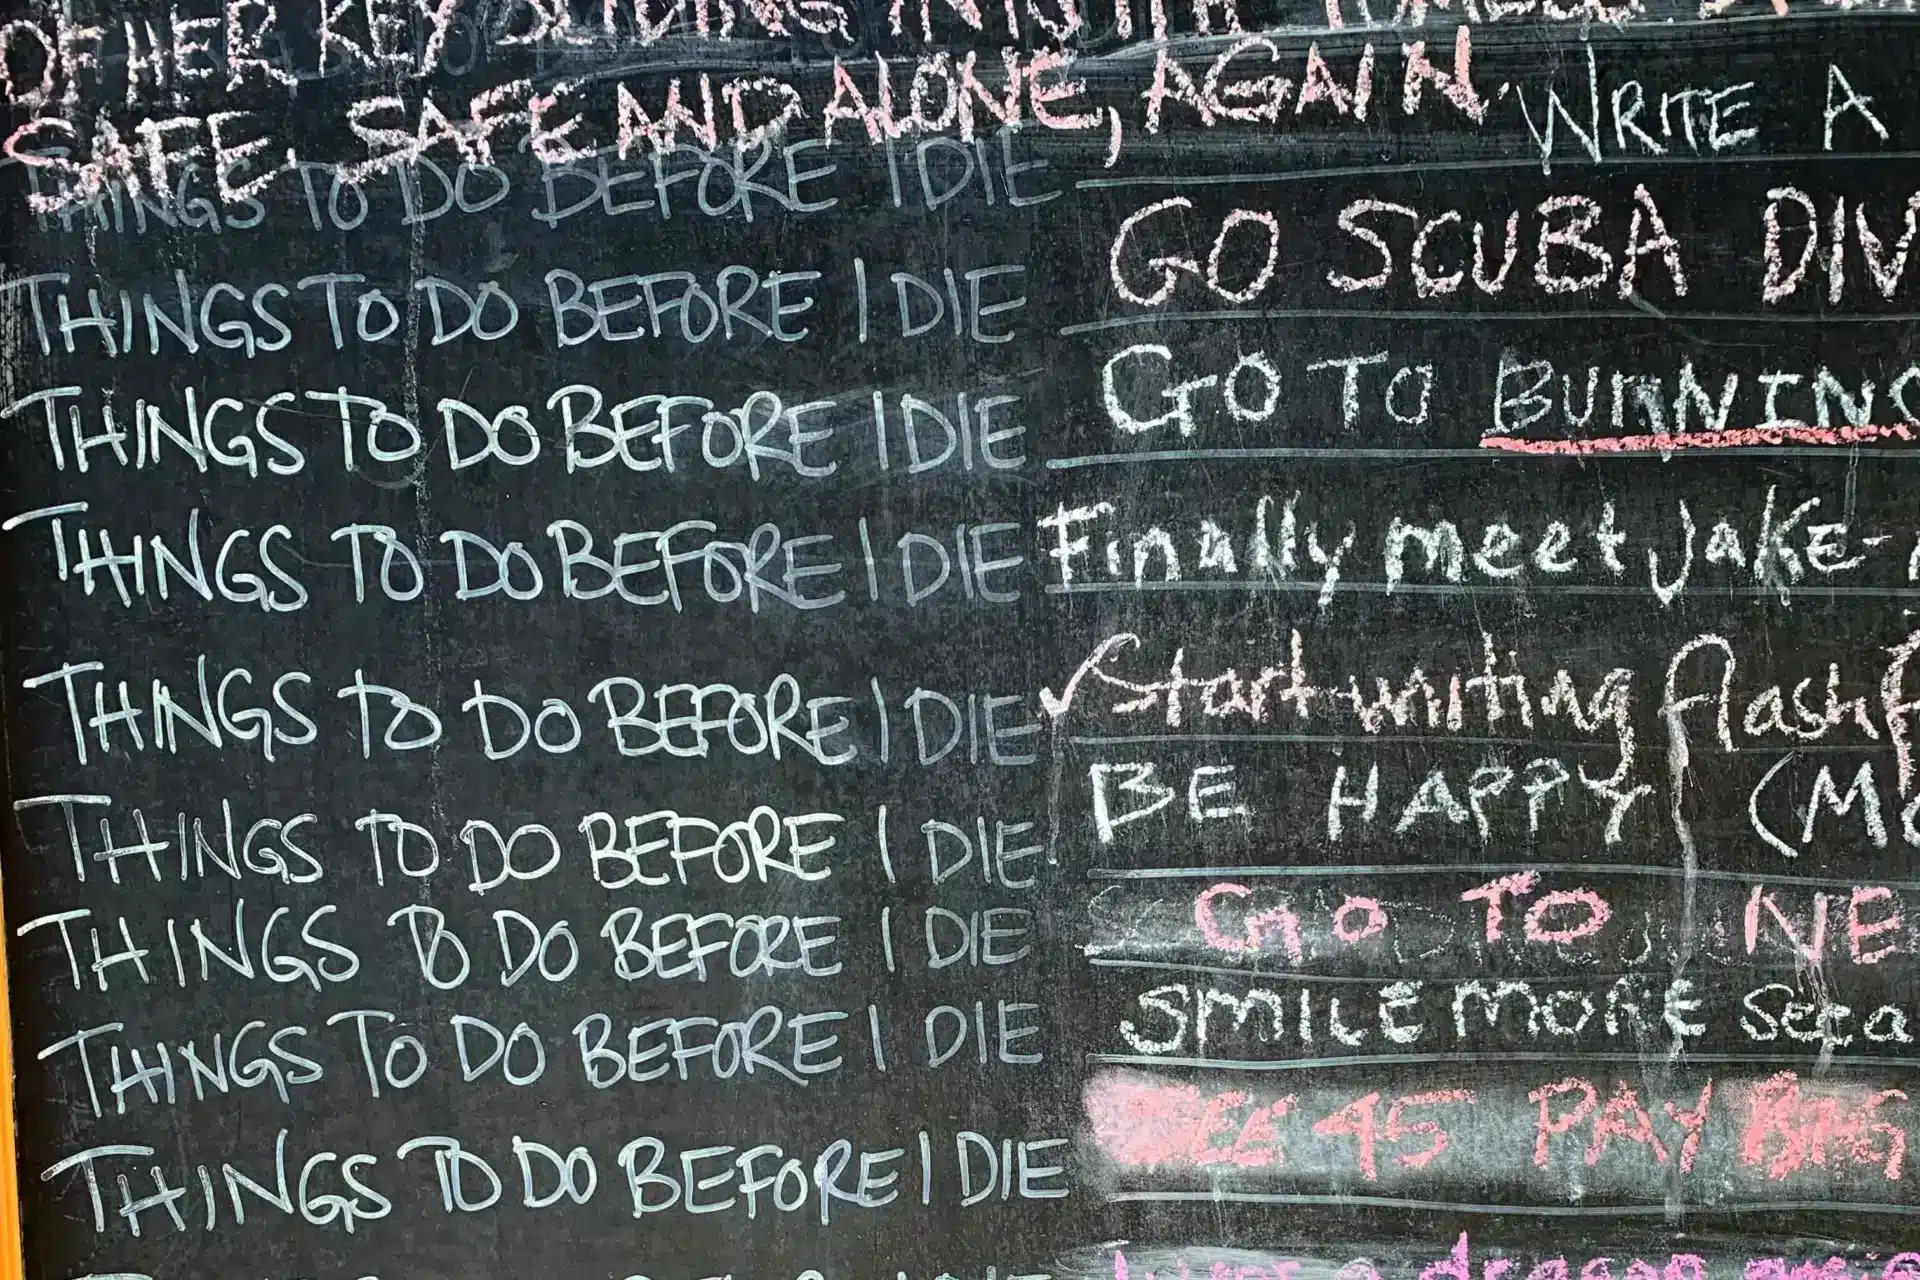 OF HER KEY SLIDING INTO THE
SAFE. SAFE AND ALONE, AGAIN.
THINGS TO DO BEFORE I DIE WRITE A
THINGS TO DO BEFORE I DIE GO SCUBA DIV
THINGS TO DO BEFORE I DIE GO TO BURNING
THINGS TO DO BEFORE I DIE Finally meet Jake-
THINGS TO DO BEFORE I DIE Start writing flash f
THINGS TO DO BEFORE I DIE BE HAPPY (MO
THINGS TO DO BEFORE I DIE GO TO NE
THINGS TO DO BEFORE I DIE SMILE MORE
THINGS TO DO BEFORE I DIE SEE 45 PAY BIG
THINGS TO DO BEFORE I DIE a dragon